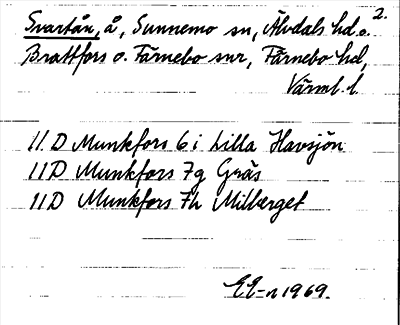 2.
Svartån, å, Sunnemo sn, Älvdals hd o.
Brattfors o. Färnebo snr, Färnebo hd,
Värml. l.
11 D Munkfors 6 i Lilla Havsjön
11 D Munkfors 7 g Gräs
11 D Munkfors 7 h Milberget
EE-n 1969.